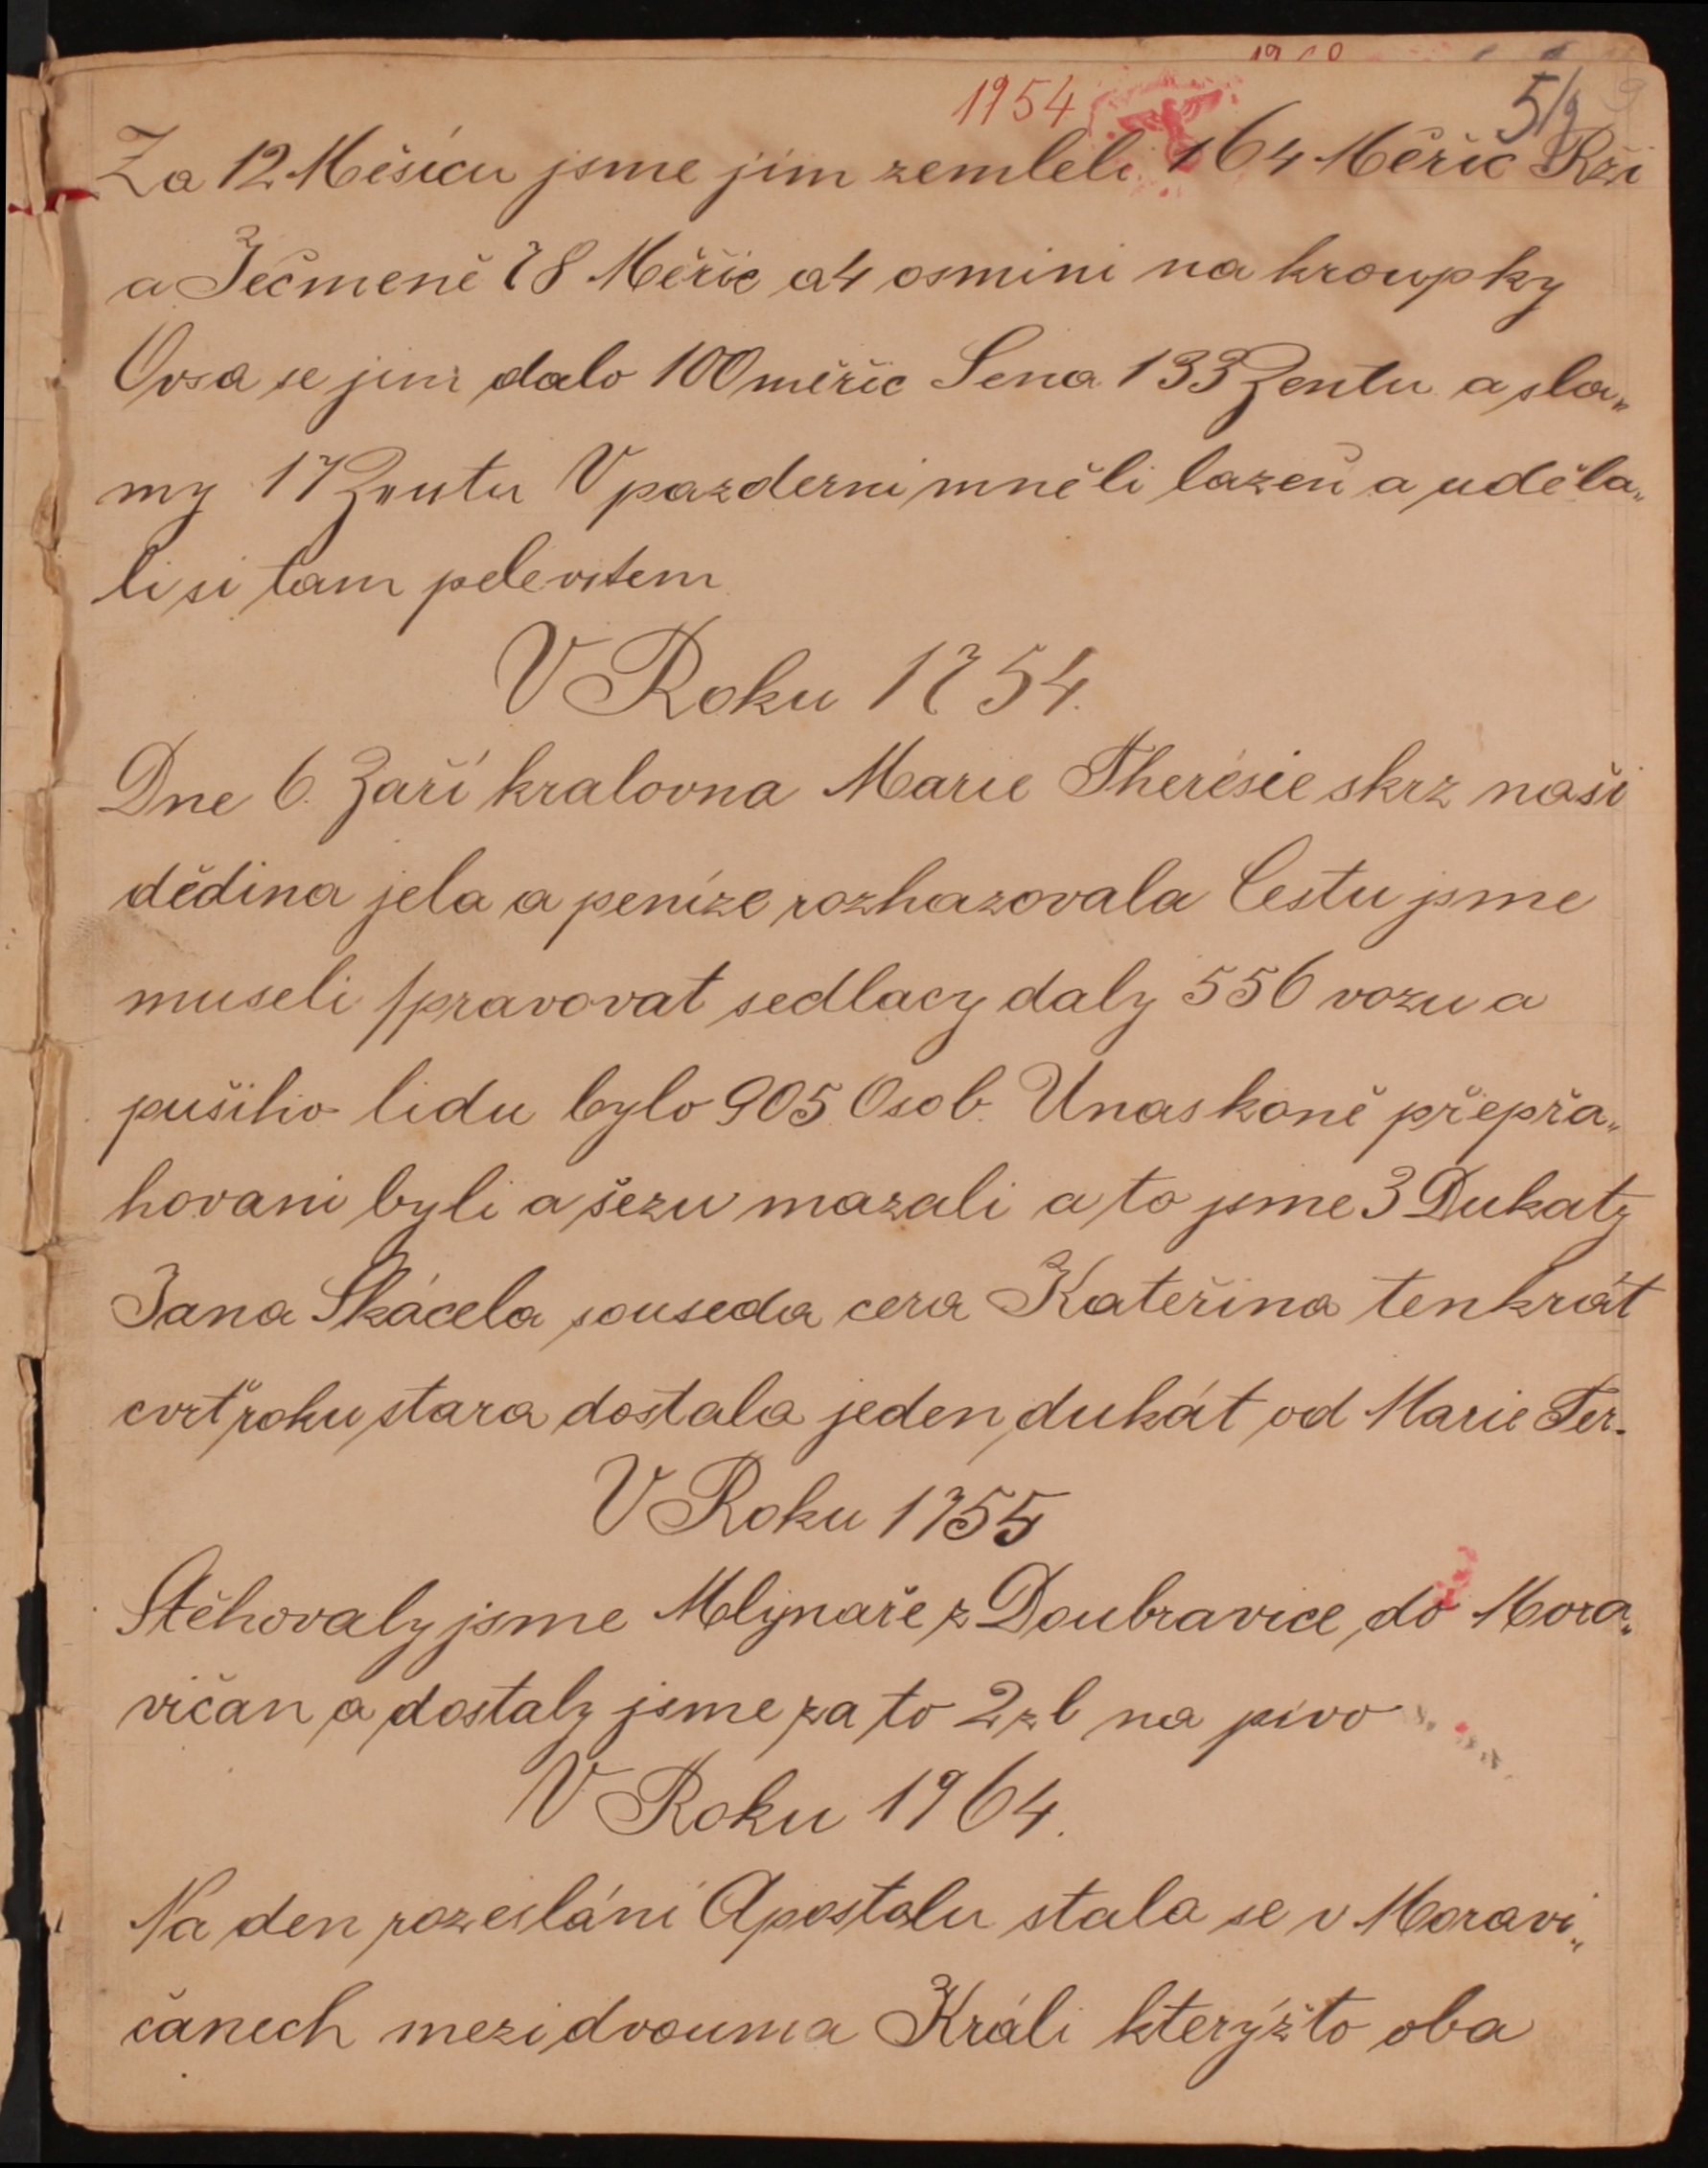 1954
5/9
Za 12 Měsícu jsme jim zemleli 164 Měřic Rži
a Ječmeně 78 Měřic a 4 osmini na kroupky
Ovsa se jim dalo 100 měřic Sena 133 Zentu a sla„
my 17 Zentu V pazderni mněli lazeň a uděla„
li si tam
V Roku 1754.
Dne 6. Zaří kralovna Marie Therésie skrz naši
dědina jela a peníze rozhazovala Cestu jsme
museli spravovat sedlacy daly 556 vozu a
pušiho lidu bylo 905 Osob. U nas koně přepřa„
hovani byli a šezu mazali a to jsme 3 Dukaty
Jana Skácela souseda cera Kateřina tenkrát
cvrť roku stara dostala jeden dukát od Marie Ter.
V Roku 1755
Stěhovaly jsme Mlynaře z Doubravice do Mora„
vičan a dostaly jsme za to 2 zl na pivo
V Roku 1964.
Na den rozeslání Apostolu stala se v Moravi„
čanech mezi dvouma Králi kterýžto oba